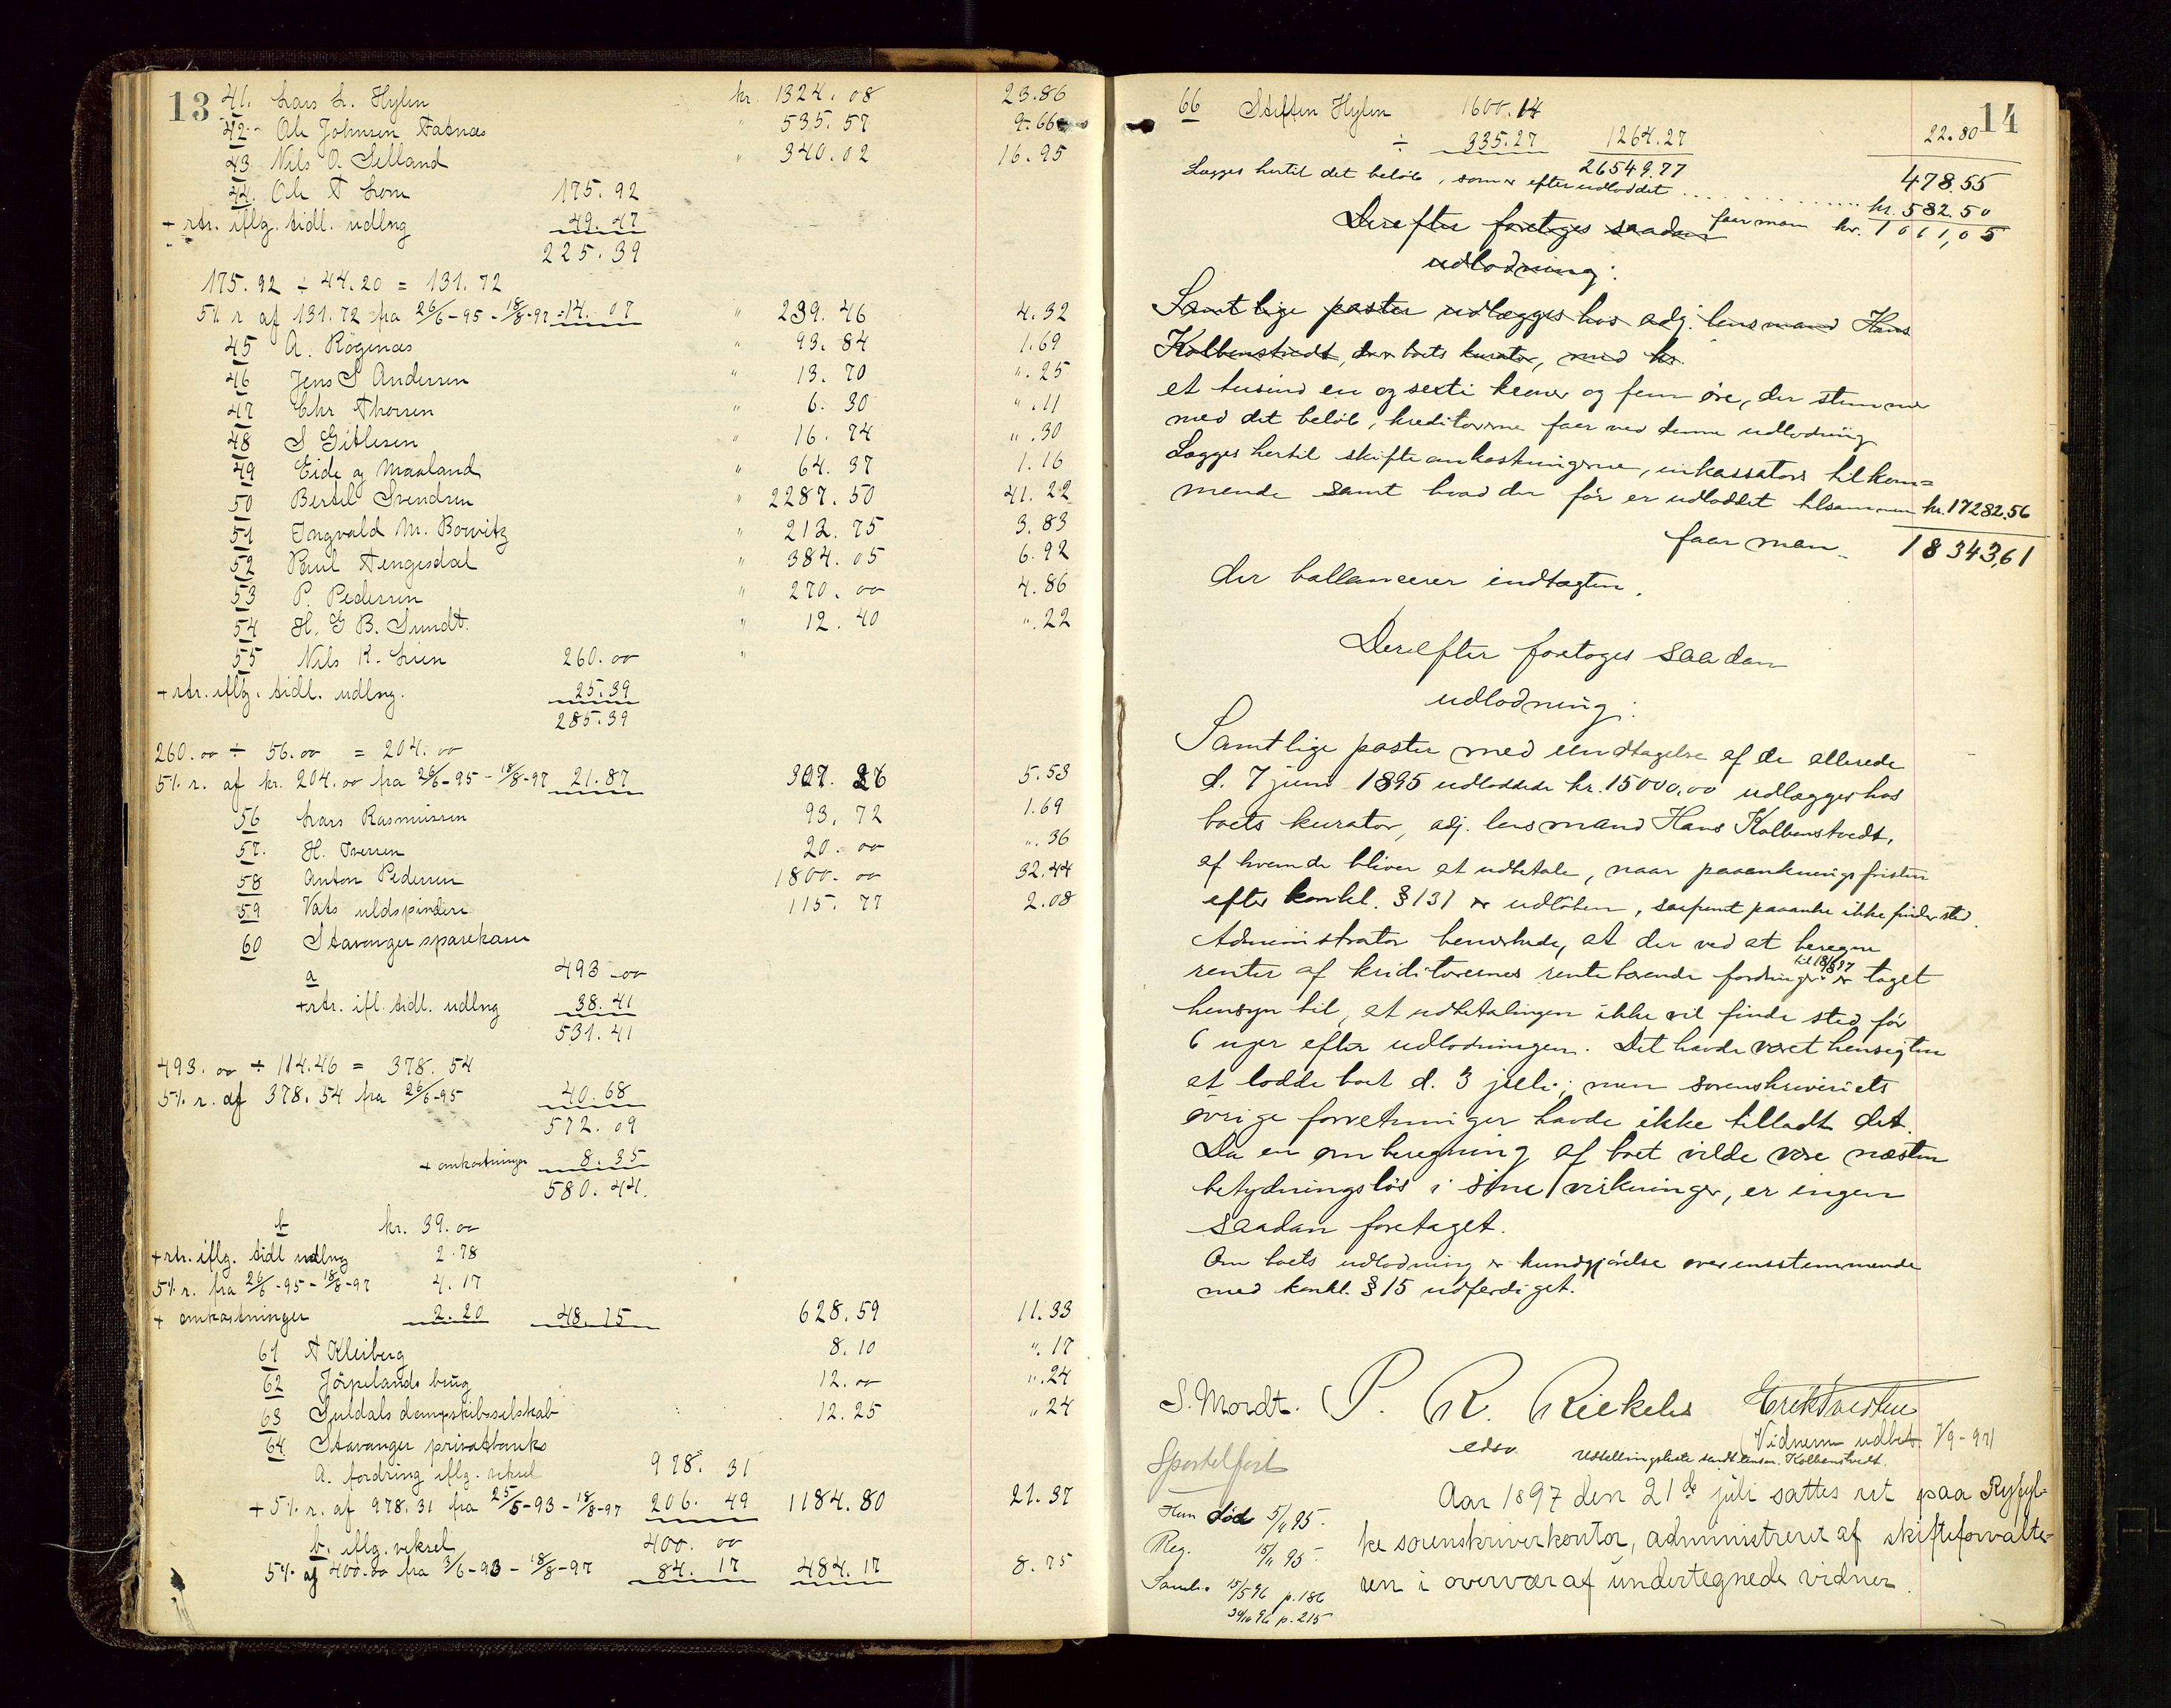 13
41. Lars L. Hylen kr. 1324.08 23.86
42. Ole Johnsen Fatnæs " 535.57 9.66
43 Nils O. Selland " 340.02 16.95
44. Ole T Lom 175.92
+ rtr. iflg. tidl. udlng 49.47
225.39
175.92 ÷ 44.20 = 131.72
5% r af 131.72 fra 26/6-95 - 18/8-97 = 14.07 " 239.46 4.32
45 A. Rogenæs " 93.84 1.69
46 Jens S Andersen " 13.70 ".25
47 Chr Thorsen " 6.30 ".11
48 S Gitlesen " 16.74 ".30
49 Eide og Maaland " 64.37 1.16
50 Bertel Svendsen " 2287.50 41.22
51 Ingvald M. Bowitz " 212.75 3.83
52 Paul Tengesdal " 384.05 6.92
53 P. Pedersen " 270.00 4.86
54 H. G B. Sundt. " 12.40 ".22
55 Nils K. Lien 260.00 "
+ rtr. iflg. tidl. udlng. 25.39
285.39
260.00 ÷ 56.00 = 204.00
5% r. af kr. 204.00 fra 26/6-95 - 18/8-97 21.87 307.26 5.53
56 Lars Rasmussen 93.72 1.69
57. H. Iversen 20.00 ".36
58 Anton Pedersen 1800.00 32.44
59 Vats uldspinderi 115.77 2.08
60 Stavanger sparekasse
a 493.00
+ rtr. ifl. tidl. udlng 38.41
531.41
493.00 ÷ 114.46 = 378.54
5% r. af 378.54 fra 26/6-95 40.68
572.09
+ omkostninger 8.35
580.44.
b kr. 39.00
+ rtr. iflg. tidl udlng 2.78
5% r. fra 26/6-95 - 18/8-97 4.17
+ omkostninger 2.20 48.15 628.59 11.33
61 T Kleiberg 8.10 ".17
62 Jörpelands brug 12.00 ".24
63 Suldals dampskibsselskab 12.25 ".24
64 Stavanger privatbank
a. fordring iflg. veksel 978.31
+ 5% r. af 978.31 fra 25/5-93 - 18/8-97 206.49 1184.80 21.37
b. iflg. veksel 400.00
5% af 400.00 fra 3/6-93 - 18/8-97 84.17 484.17 8.75
14
66 Steffen Hylen 1600.14
÷ 335.27 1264.27 22.80
26549.77 478.55
Lægges hertil det beløb, som er efterudloddet . . . . . . kr. 582.50
faar man kr. 1061,05
Derefter foretoges saadan
udlodning:
Samtlige poster udlægges hos adj. lensmand Hans
Kolbenstvedt, der er boets kurator, med kr.
et tusind en og sexti kroner og fem øre, der stemmer
med det beløb, kreditorerne faar ved denne udlodning
Lægges hertil skifteomkostningerne, inkassators tilkom=
mende samt hvad der før er udloddet tilsammen kr. 17282.56
faar man 18343,61
der ballancerer indtægten.
Derefter foretoges saadan
udlodning:
Samtlige poster med undtagelse af de allerede
d. 7 juni 1895 udloddede kr. 15000,00 udlægges hos
boets kurator, adj. lensmand Hans Kolbenstvedt,
af hvem de bliver at udbetale, naar paaankningsfristen
efter konkl. § 131 er udløben, saafremt paaanke ikke finder sted.
Administrator bemerkede, at der ved at beregne
renter af kreditorernes rentebærende fordringer til 18/8 97 er taget
hensyn til, at udbetalingen ikke vil finde sted før
6 uger efter udlodningen. Det havde været hensigten
at lodde boet d. 3 juli; men sorenskriveriets
øvrige forretninger havde ikke tilladt det.
Da en omberegning af boet vilde være næsten
betydningsløs i sine virkninger, er ingen
saadan foretaget.
Om boets udlodning er kundgjørelse overensstemmende
med konkl. § 15 udferdiget.
S. Mordt. P. R. Riekeles Erik Tveiten
edsv. (Vidnerne udbet. 1/9-97)
Udtellingsliste sendt lensm. Kolbenstvedt.
Sportelfrit
Kun död 5/11 95.
Reg. 15/11 95.
Saml. 15/5 96 p. 186
30/10 96 p. 215
Aar 1897 den 21de juli sattes ret paa Ryfyl-
ke sorenskriverkontor, administreret af skifteforvalte-
ren i overvær af undertegnede vidner.